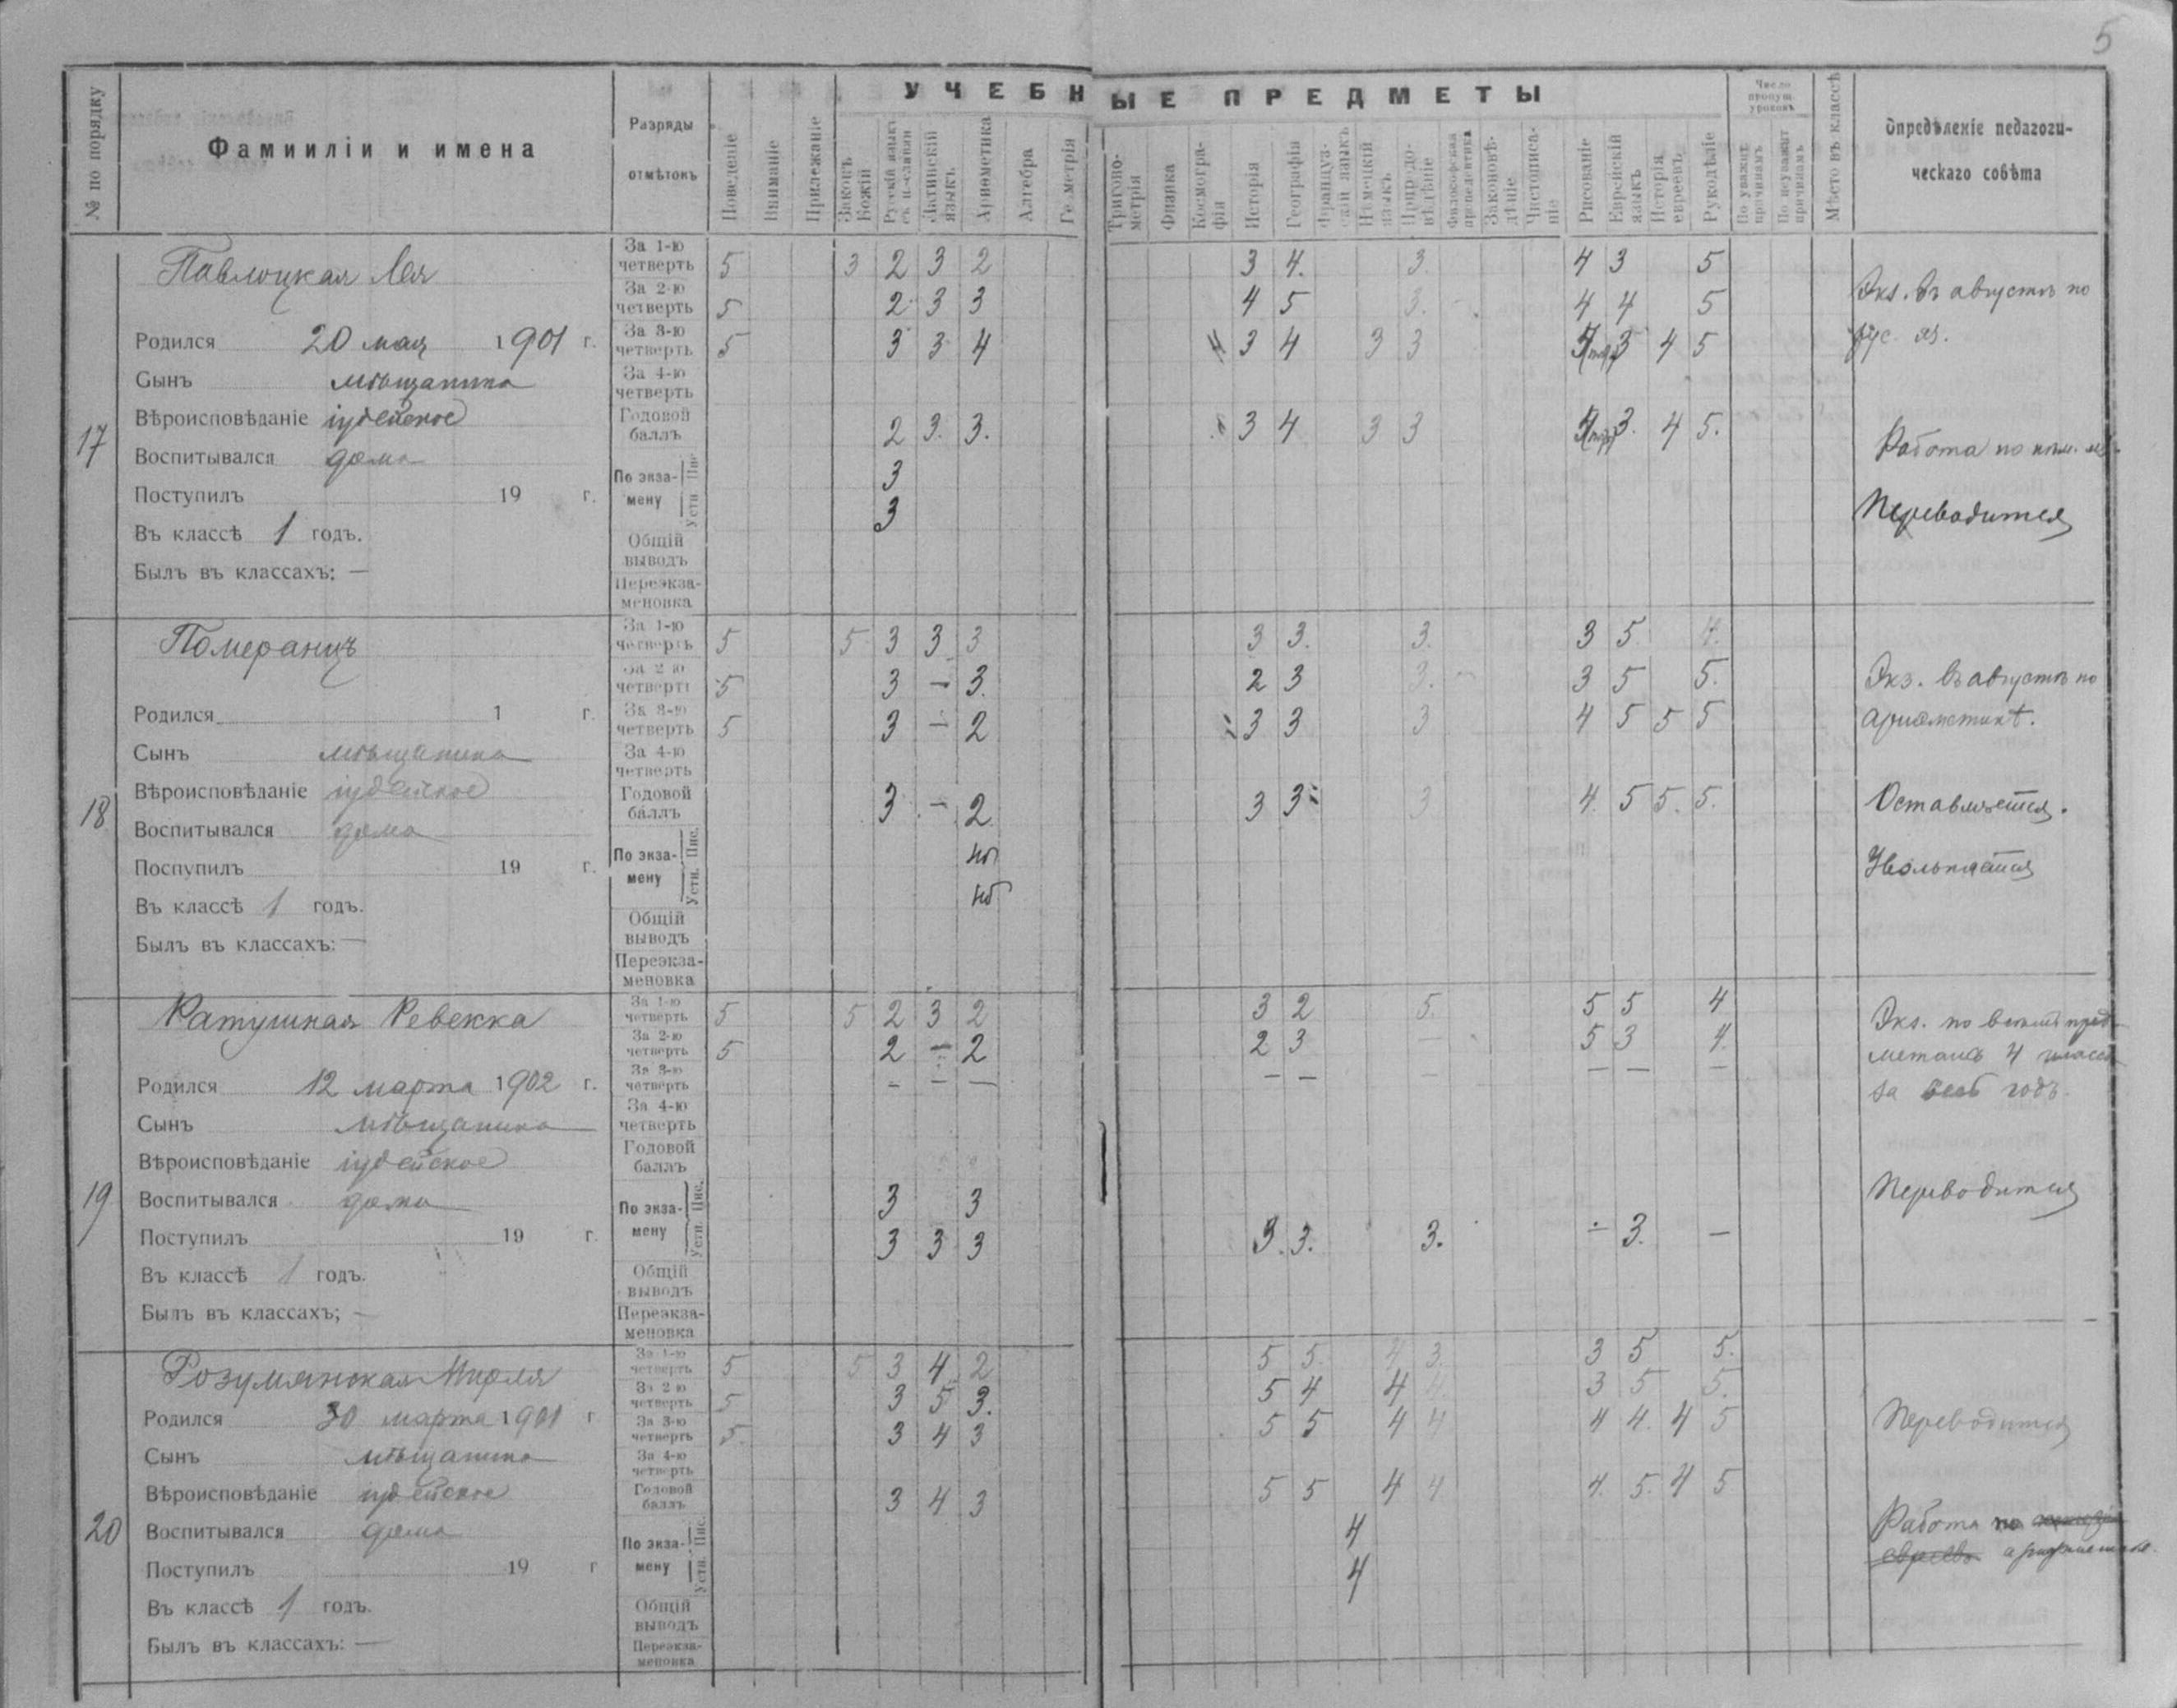 5
УЧЕБНЫЕ ПРЕДМЕТЫ
№ по порядку
Фамииліи и имена
Разряды отмѣтокъ
Поведеніе
Вниманіе
Прилежаніе
Законъ Божій
Русскій языкъ
Латинскій языкъ
Ариѳметика
Алгебра
Геометрія
Тригонометрія
Физика
Космографія
Исторія
Географія
Француз-скій языкъ
Нѣмецкій языкъ
Природо-вѣдѣніе
Философская пропедевтика
Законовѣ-дѣніе
Чистописа-ніе
Рисованіе
Еврейскій языкъ
Исторія евреевъ
Рукодѣліе
Число пропущ. уроковъ
По уважит. причинамъ
По неуважит. причинамъ
Мѣсто въ классѣ
Опредѣленіе педагоги-
ческаго совѣта
17
Павлоцкая Лея
Родился 20 мая 1901 г.
Сынъ мѣщанина
Вѣроисповѣданіе іудейское
Воспитывался дома
Поступилъ 19 г.
Въ классѣ 1 годъ.
Былъ въ классахъ: —
За 1-ю четверть 5 3 2 3 2 3 4. 3. 4 3 5
За 2-ю четверть 5 2 3 3 4 5 3. 4 4 5
За 3-ю четверть 5 3 3 4 3 4 3 3 3 4 5
За 4-ю четверть
Годовой баллъ 2 3. 3. 3 4 3 3 3. 4 5.
По экза-мену Пис. 3
Устн. 3
Общій выводъ
Переэкза-меновка
Экз. въ августѣ по
рус. яз.
Работа по нѣм. яз.
Переводится
18
Померанцъ
Родился 1 г.
Сынъ мѣщанина
Вѣроисповѣданіе іудейское
Воспитывался дома
Поспупилъ 19 г.
Въ классѣ 1 годъ.
Былъ въ классахъ: —
За 1-ю четверть 5 5 3 3 3 3 3. 3. 3 5. 4.
За 2-ю четверть 5 3 — 3. 2 3 3. 3 5 5.
За 3-ю четверть 5 3 — 2 3 3 3 4 5 5 5
За 4-ю четверть
Годовой баллъ 3 — 2 3 3 3 4. 5 5. 5.
По экза-мену Пис. нб
Устн. нб
Общій выводъ
Переэкза-меновка
Экз. въ августѣ по
ариѳметикѣ.
Оставляется.
Увольняется
19
Ратушная Ревекка
Родился 12 марта 1902 г.
Сынъ мѣщанина
Вѣроисповѣданіе іудейское
Воспитывался дома
Поступилъ 19 г.
Въ классѣ 1 годъ.
Былъ въ классахъ; —
За 1-ю четверть 5 5 2 3 2 3 2 5. 5 5 4
За 2-ю четверть 5 2 — 2 2 3 — 5 3 4.
За 3-ю четверть — — — — — — — — —
За 4-ю четверть
Годовой баллъ
По экза-мену Пис. 3 3
Устн. 3 3 3 3. 3. 3. — 3. —
Общій выводъ
Переэкза-меновка
Экз. по всѣмъ пред-
метамъ 4 класса
за весь годъ.
Переводится
20
Розумянская Мирля
Родился 30 марта 1901 г
Сынъ мѣщанина
Вѣроисповѣданіе іудейское
Воспитывался дома
Поступилъ 19 г
Въ классѣ 1 годъ.
Былъ въ классахъ: —
За 1-ю четверть 5 5 3 4 2 5 5. 4 3. 3 5 5.
За 2-ю четверть 5 3 5 3. 5 4 4 4. 3 5 5.
За 3-ю четверть 5. 3 4 3 5 5 4 4 4 4. 4 5
За 4-ю четверть
Годовой баллъ 3 4 3 5 5 4 4 4. 5. 4 5
По экза-мену Пис. 4
Устн. 4
Общій выводъ
Переэкза-меновка
Переводится
Работа по
евреевъ